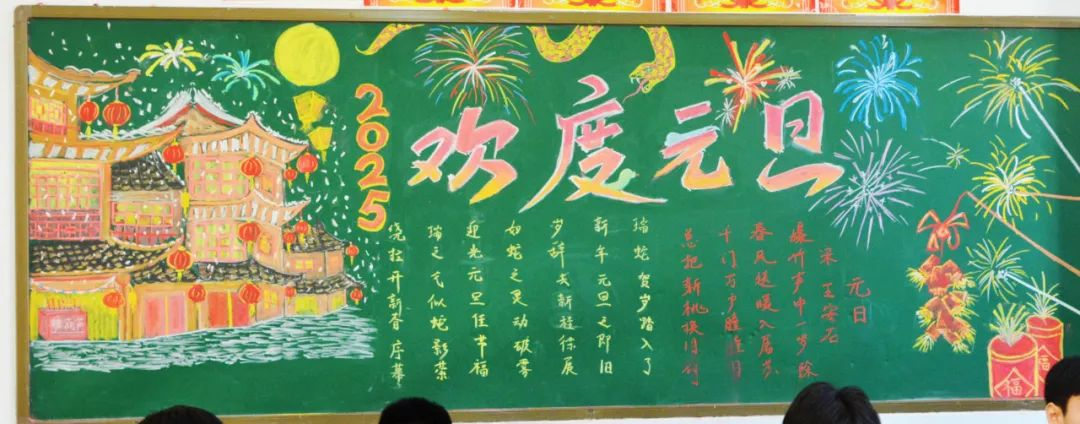 2025
欢度元旦
元日
宋 王安石
爆竹声中一岁除
春风送暖入屠苏
千门万户曈曈日
总把新桃换旧符
瑞蛇贺岁踏入了
新年元旦之即旧
岁辞去新征徐展
如蛇之灵动破雾
迎来元旦佳节福
瑞之气似蛇影萦
绕拉开新春序幕
福
福